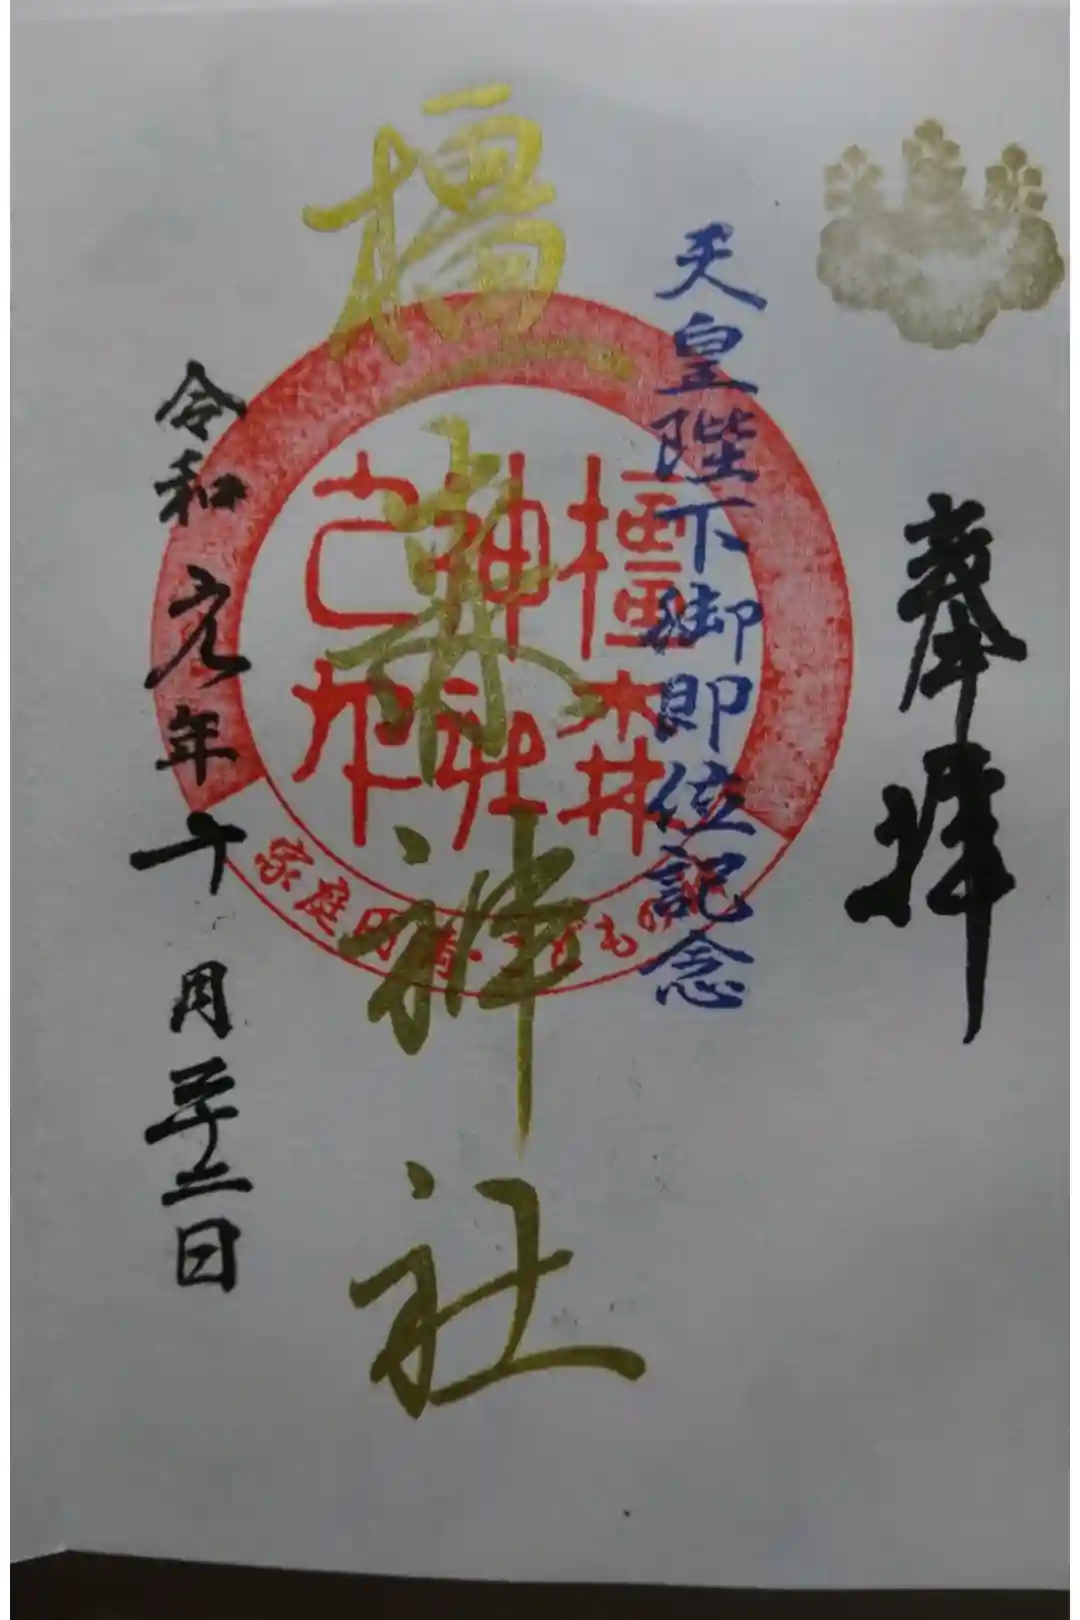 奉拝
天皇陛下御即位記念
橿森神社
橿森
神社
之印
家庭円満・こどもの
令和元年十月二十二日